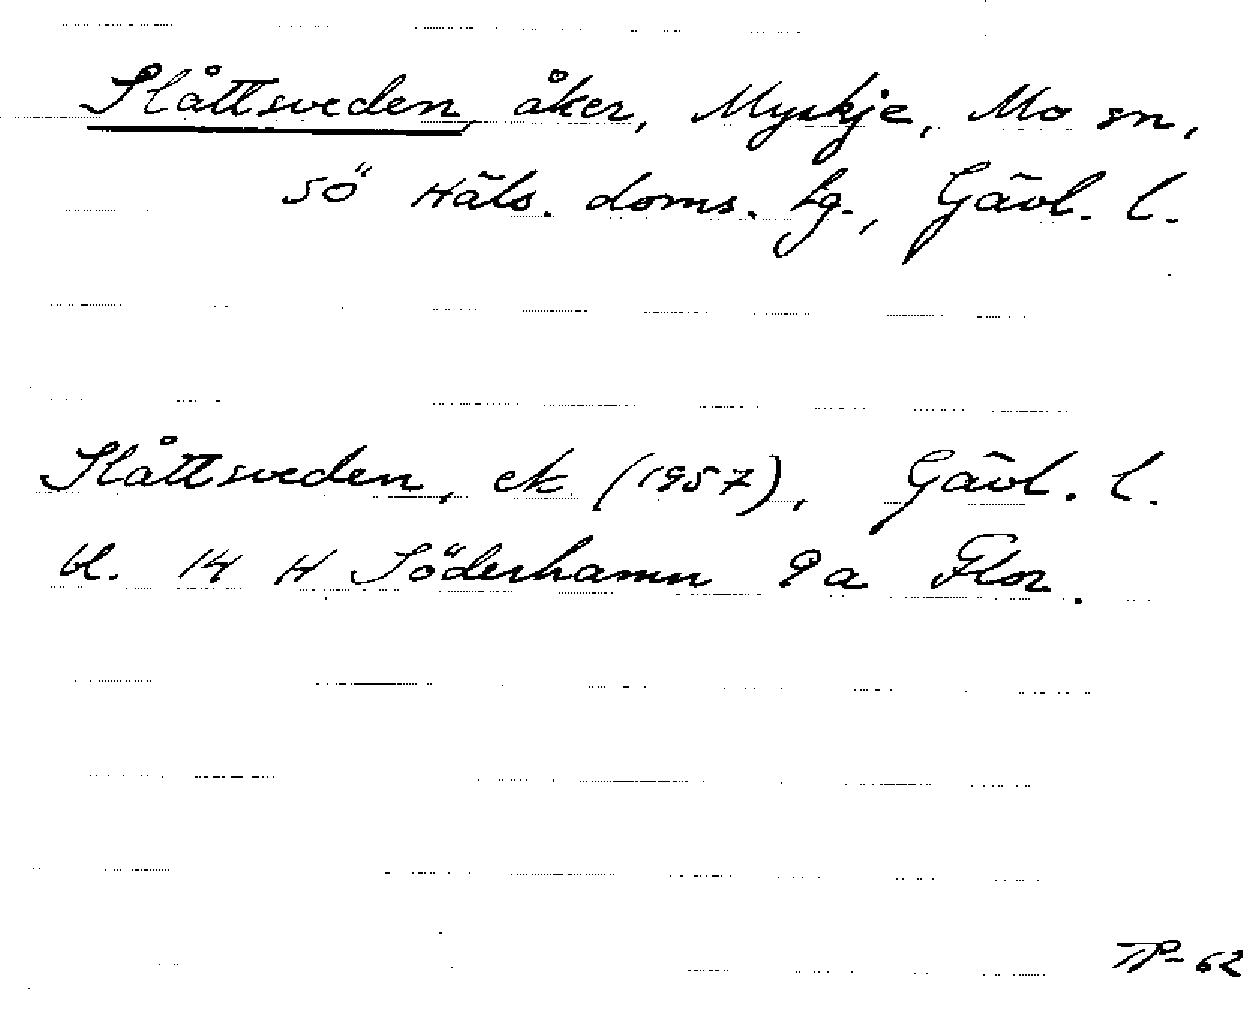 Slåttsveden, åker, Myskje, Mo sn,
sö Häls. doms. lg., Gävl. l.
Slåttsveden, ek (1957), Gävl. l.
bl. 14 H Söderhamn 9a Flor.
TP-62